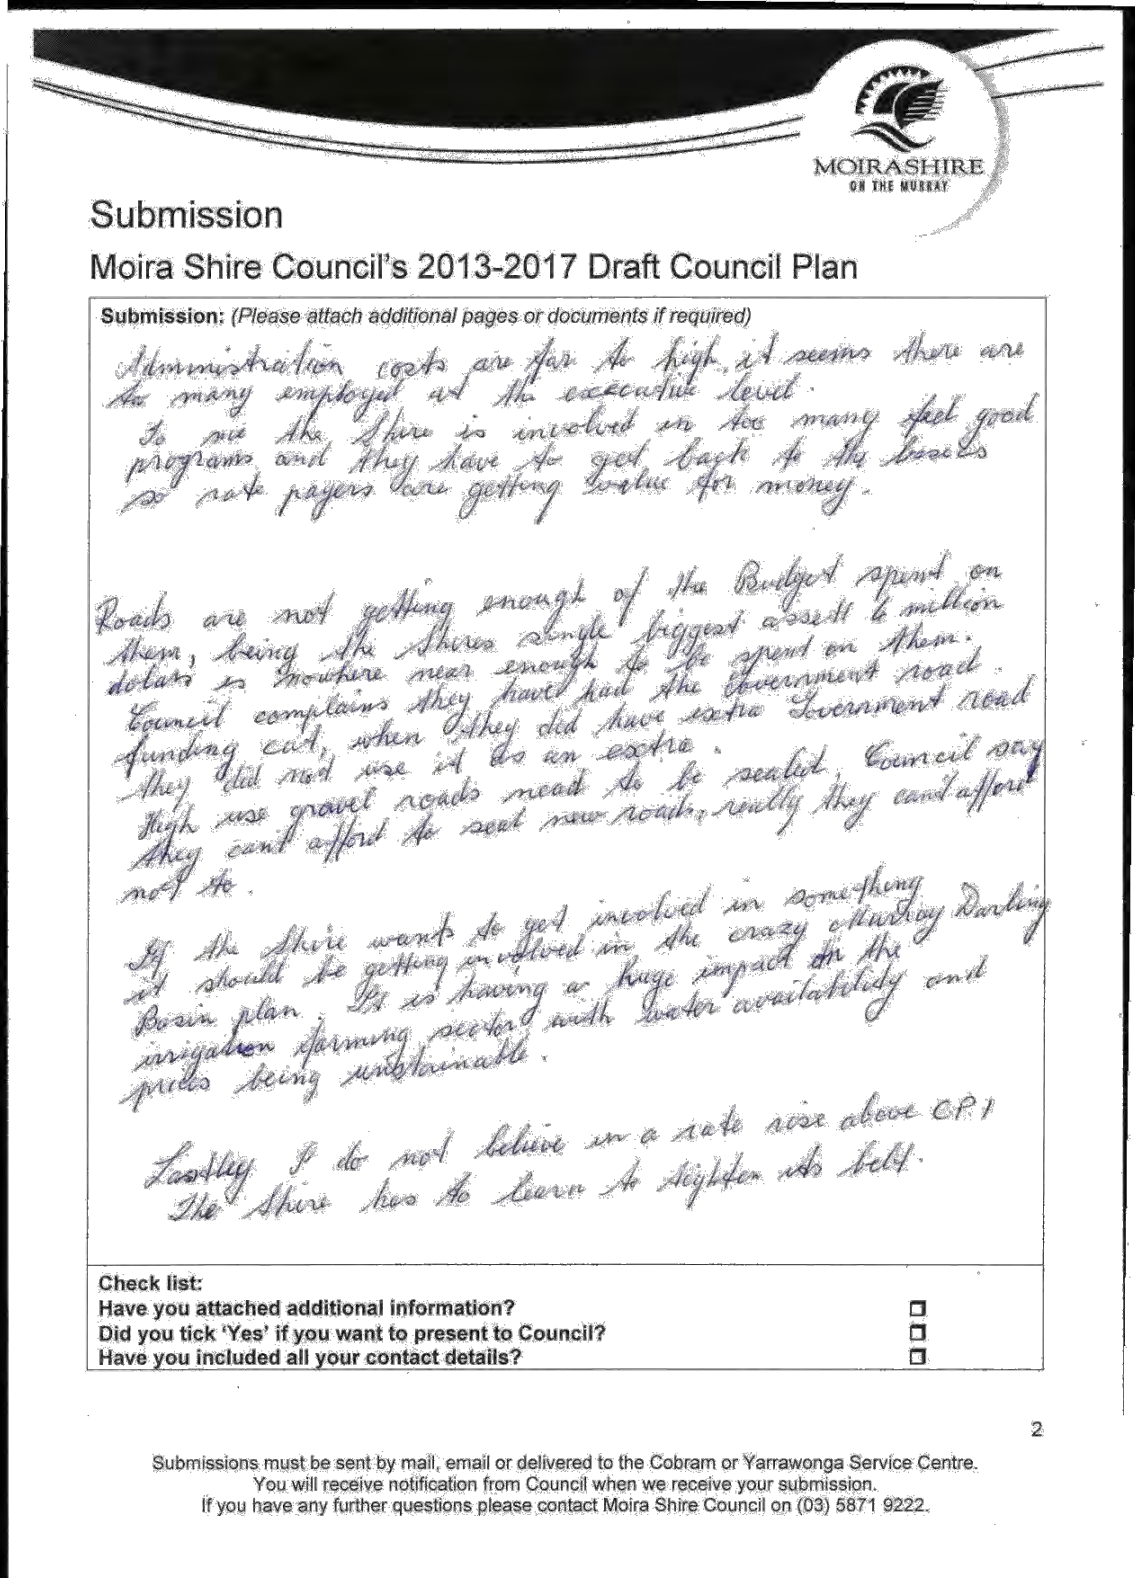 MOIRA SHIRE
ON THE MURRAY
Submission
Moira Shire Council's 2013-2017 Draft Council Plan
Submission: (Please attach additional pages or documents if required)
Administration costs are far to high, it seems there are
to many employed at the executive level.
To me the Shire is involved in too many feel good
programs and they have to get back to the basics
so rate payers are getting value for money.
Roads are not getting enough of the Budget spent on
them, being the Shires single biggest assett 6 million
dolars is nowhere near enough to be spent on them.
Council complains they have had the Government road
funding cut, when they did have extra Government road
they did not use it as an extra.
High use gravel roads need to be sealed, Council say
they cant afford to seal new roads, really they cant afford
not to.
If the Shire wants to get involved in something
it should be getting involved in the crazy Murray Darling
Basin plan. It is having a huge impact on the
irrigation farming sector with water availability and
prices being unstainable.
Lastley I do not believe in a rate rise above CPI
The Shire has to learn to tighten its belt.
Check list:
Have you attached additional information? ☐
Did you tick 'Yes' if you want to present to Council? ☐
Have you included all your contact details? ☐
2
Submissions must be sent by mail, email or delivered to the Cobram or Yarrawonga Service Centre.
You will receive notification from Council when we receive your submission.
If you have any further questions please contact Moira Shire Council on (03) 5871 9222.